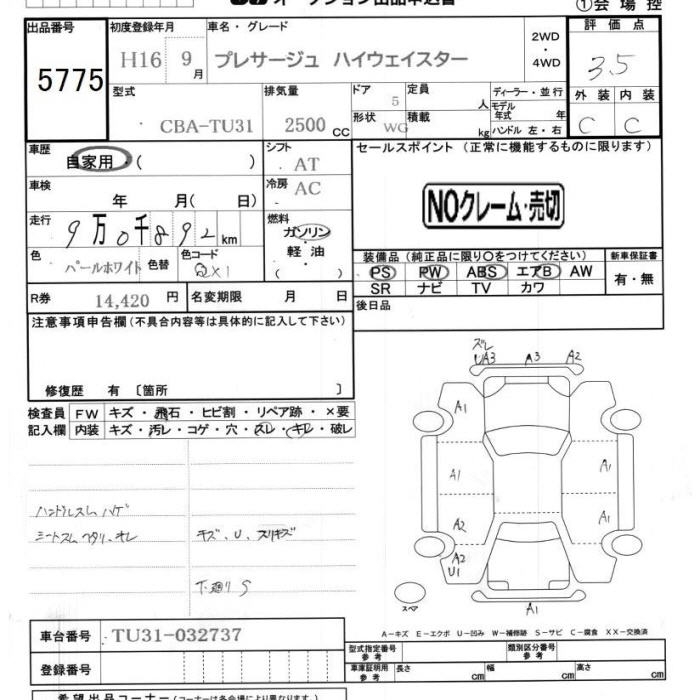 オークション出品申込書
①会場控
出品番号 初度登録年月 車名・グレード 2WD・4WD 評価点
5775 H16 9月 プレサージュ ハイウェイスター 3.5
型式 排気量 ドア 定員 ディーラー・並行 外装 内装
CBA-TU31 2500cc 5 人 モデル年式 年 C C
形状 WG 積載 kg ハンドル 左・右
車歴 自家用・( ) シフト AT セールスポイント (正常に機能するものに限ります)
車検 年 月( 日) 冷房 AC
NOクレーム・売切
走行 9万0千892km 燃料 ガソリン・軽油・( )
色 パールホワイト 色替 色コード QX1
装備品(純正品に限り○をつけてください) 新車保証書
PS PW ABS エアB AW 有・無
SR ナビ TV カワ
R券 14,420円 名変期限 月 日 後日品
注意事項申告欄(不具合内容等は具体的に記入して下さい)
修復歴 有〔箇所 〕
検査員 FW キズ・飛石・ヒビ割・リペア跡・×要
記入欄 内装 キズ・汚レ・コゲ・穴・スレ・キレ・破レ
ズレ
UA3 A3 A2
A1
A1 A1
A2 A1
A2
U1
A1
スペア
ハンドルスレ ハゲ
シートスレ ヘタリ、オレ キズ、U、スリキズ
下廻りS
A-キズ E-エクボ U-凹み W-補修跡 S-サビ C-腐食 XX-交換済
車台番号 TU31-032737
型式指定番号参考 類別区分番号参考
登録番号 車庫証明用参考 長さ cm 幅 cm 高さ cm
希望出品コーナー(コーナーは各会場により異なります)